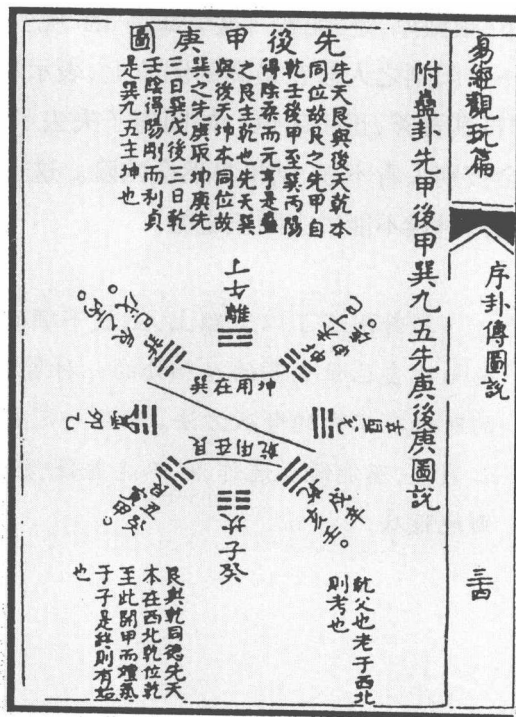 易經觀玩篇
序卦傳圖說
三四
附蠱卦先甲後甲巽九五先庚後庚圖說
先後甲庚圖
先天艮與後天乾本
同位故艮之先甲自
乾壬後甲至巽丙陽
得陰柔而元亨是蠱
之艮主乾也先天巽
與後天坤本同位故
巽之先庚取坤庚先
三日巽戊後三日乾
壬陰得陽剛而利貞
是巽九五主坤也
離午丁
坤用在巽
乾用在艮
坎子癸
乾父也老于西北
則考也
艮與乾同德先天
本在西北乾位乾
至此開甲而
于子是終則有始
也